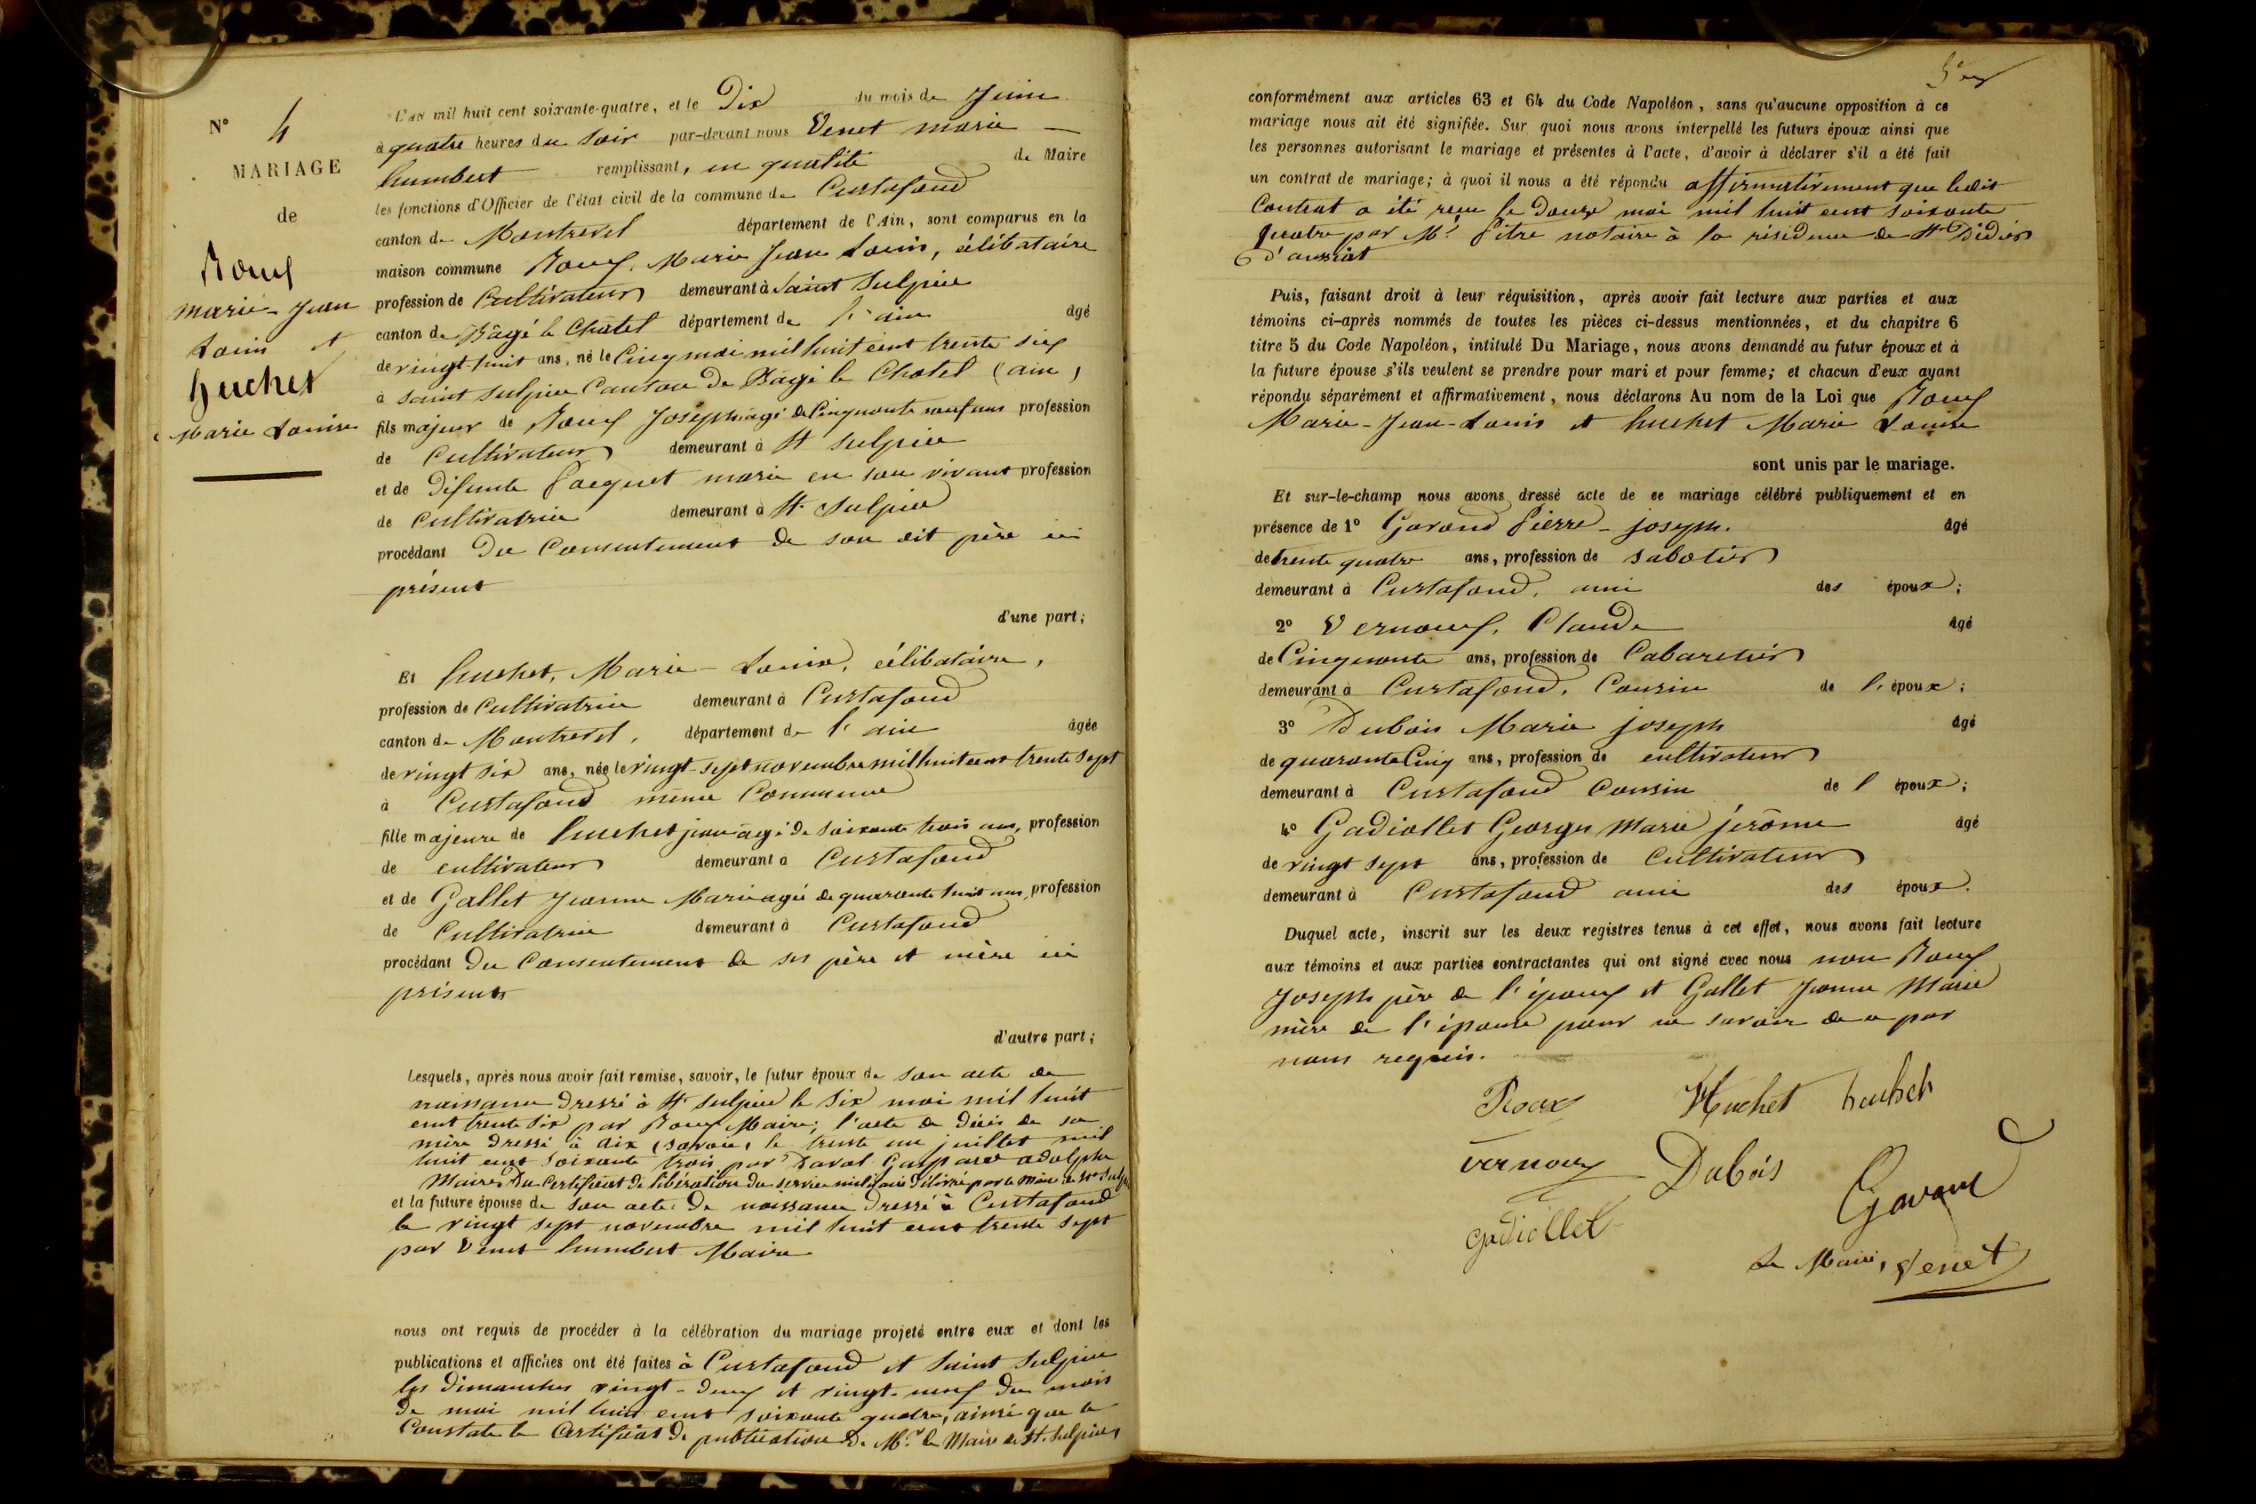 N° 4
MARIAGE
de
Roux
Marie-Jean
Louis et
huchet
Marie Louise
L'an mil huit cent soixante-quatre, et le Dix du mois de Juin
à quatre heures du soir par-devant nous Venet marie
humbert remplissant, en qualité de Maire
les fonctions d'Officier de l'état civil de la commune de Curtafond
canton de Montrevel département de l'Ain, sont comparus en la
maison commune Roux, Marie Jean Louis, célibataire
profession de Cultivateur demeurant à Saint Sulpice
canton de Bâgé le Châtel département de l'ain âgé
de vingt-huit ans, né le Cinq mai mil huit cent trente six
à saint sulpice Canton de Bâgé le Chatel (ain)
fils majeur de Roux Joseph agé de Cinquante neuf ans profession
de Cultivateur demeurant à St Sulpice
et de défunte Pacquet marie en son vivant profession
de Cultivatrice demeurant à St Sulpice
procédant du Consentement de son dit père ici
présent
d'une part;
Et huchet, Marie-Louise, célibataire,
profession de Cultivatrice demeurant à Curtafond
canton de Montrevel, département de l'ain âgée
de vingt six ans, née le vingt-sept novembre mil huit cent trente sept
à Curtafond même Commune
fille majeure de huchet jean agé de soixante trois ans, profession
de cultivateur demeurant à Curtafond
et de Gallet Jeanne Marie agée de quarante huit ans, profession
de Cultivatrice demeurant à Curtafond
procédant du Consentement de ses père et mère ici
présents
d'autre part;
Lesquels, après nous avoir fait remise, savoir, le futur époux de son acte de
naissance dressé à St Sulpice le six mai mil huit
cent trente six par Roux Maire; l'acte de décès de sa
mère dressé à aix (savoie) le trente un juillet mil
huit cent soixante trois par Gaspard adolphe
Maire Du Certificat de libération du service militaire délivré par le Maire de St Sulpice
et la future épouse de son acte de naissance dressé à Curtafond
le vingt sept novembre mil huit cent trente sept
par Venet humbert Maire
nous ont requis de procéder à la célébration du mariage projeté entre eux et dont les
publications et affiches ont été faites à Curtafond et Saint Sulpice
les dimanches vingt-deux et vingt-neuf du mois
de mai mil huit cent soixante quatre, ainsi que le
Constate le Certificat de publication de Mr le Maire de St Sulpice,
conformément aux articles 63 et 64 du Code Napoléon, sans qu'aucune opposition à ce
mariage nous ait été signifiée. Sur quoi nous avons interpellé les futurs époux ainsi que
les personnes autorisant le mariage et présentes à l'acte, d'avoir à déclarer s'il a été fait
un contrat de mariage; à quoi il nous a été répondu affirmativement que ledit
Contrat a été reçu le douze mai mil huit cent soixante
quatre par Me Pitre notaire à la résidence de St Didier
d'aussiat
Puis, faisant droit à leur réquisition, après avoir fait lecture aux parties et aux
témoins ci-après nommés de toutes les pièces ci-dessus mentionnées, et du chapitre 6
titre 5 du Code Napoléon, intitulé Du Mariage, nous avons demandé au futur époux et à
la future épouse s'ils veulent se prendre pour mari et pour femme; et chacun d'eux ayant
répondu séparément et affirmativement, nous déclarons Au nom de la Loi que Roux
Marie-Jean-Louis et huchet Marie Louise
sont unis par le mariage.
Et sur-le-champ nous avons dressé acte de ce mariage célébré publiquement et en
présence de 1° Gavand Pierre-joseph. âgé
de trente quatre ans, profession de sabotier
demeurant à Curtafond, ami des époux;
2° Vernoux, Claude âgé
de Cinquante ans, profession de Cabaretier
demeurant à Curtafond, Cousin de l'époux;
3° Dubois Marie joseph âgé
de quarante Cinq ans, profession de cultivateur
demeurant à Curtafond Cousin de l époux;
4° Gadiollet Georges Marie jérôme âgé
de vingt sept ans, profession de Cultivateur
demeurant à Curtafond ami des époux.
Duquel acte, inscrit sur les deux registres tenus à cet effet, nous avons fait lecture
aux témoins et aux parties contractantes qui ont signé avec nous non Roux
Joseph père de l'époux et Gallet Jeanne Marie
mère de l'épouse pour ne savoir de ce par
nous requis.
Roux Huchet
vernoux Dubois Gavand
gadiollet
Le Maire, Venet